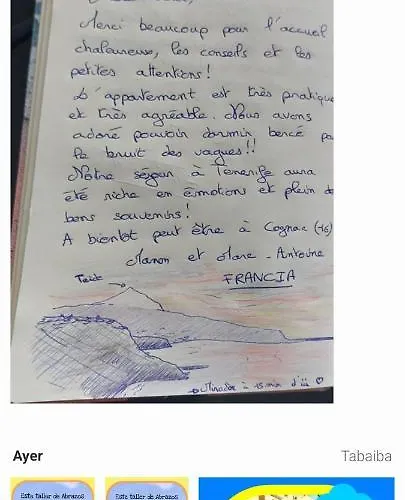 Merci beaucoup pour l'accueil
chaleureux, les conseils et les
petites attentions!
L'appartement est très pratique
et très agréable. Nous avons
adoré pouvoir dormir bercé pa
le bruit des vagues!!
Notre séjour à Tenerife aura
été riche en émotions et plein de
bons souvenirs!
A bientôt peut être à Cognac (16)
Manon et Marc-Antoine
FRANCIA
Teide
Mirador à 15 min d'ici
Ayer
Tabaiba
Este taller de Abrazos
Este taller de Abrazos